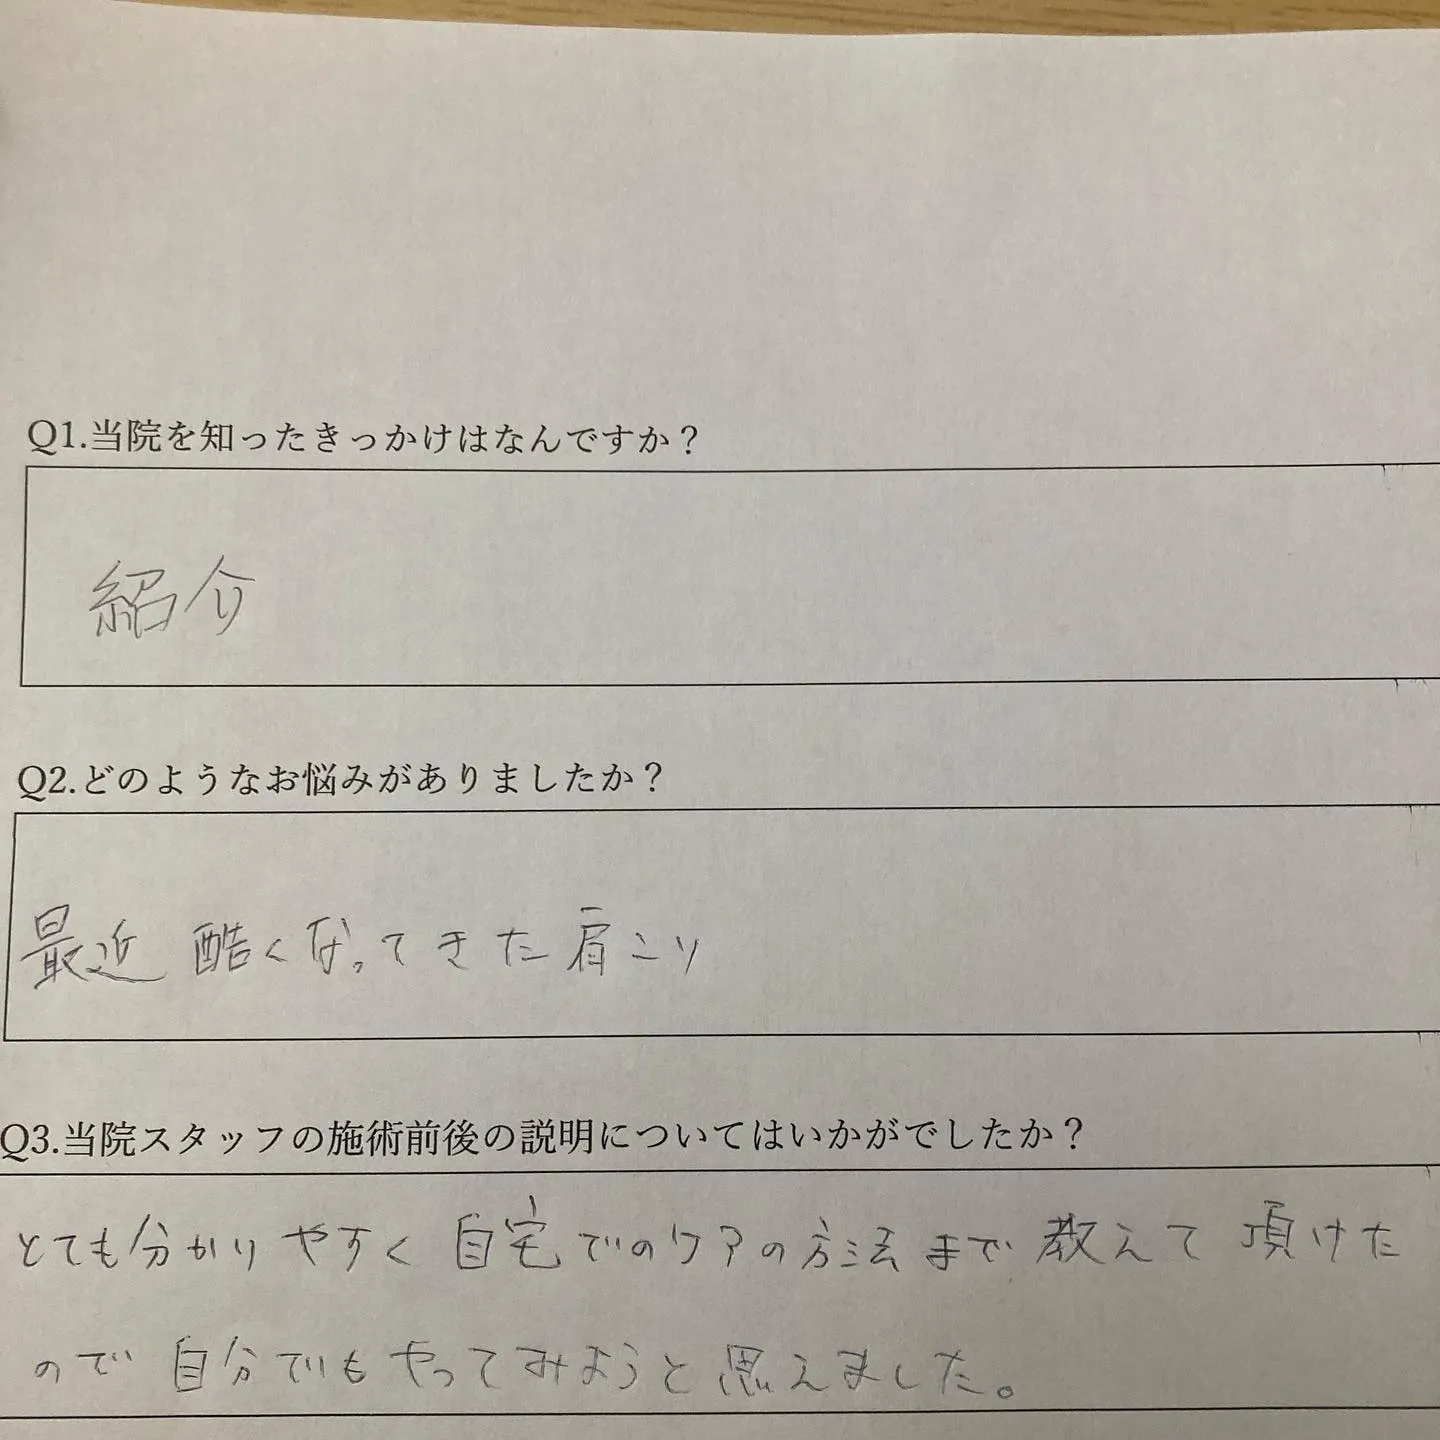 Q1.当院を知ったきっかけはなんですか？
紹介
Q2.どのようなお悩みがありましたか？
最近 酷くなってきた肩こり
Q3.当院スタッフの施術前後の説明についてはいかがでしたか？
とても分かりやすく自宅でのケアの方法まで教えて頂けた
ので自分でもやってみようと思えました。